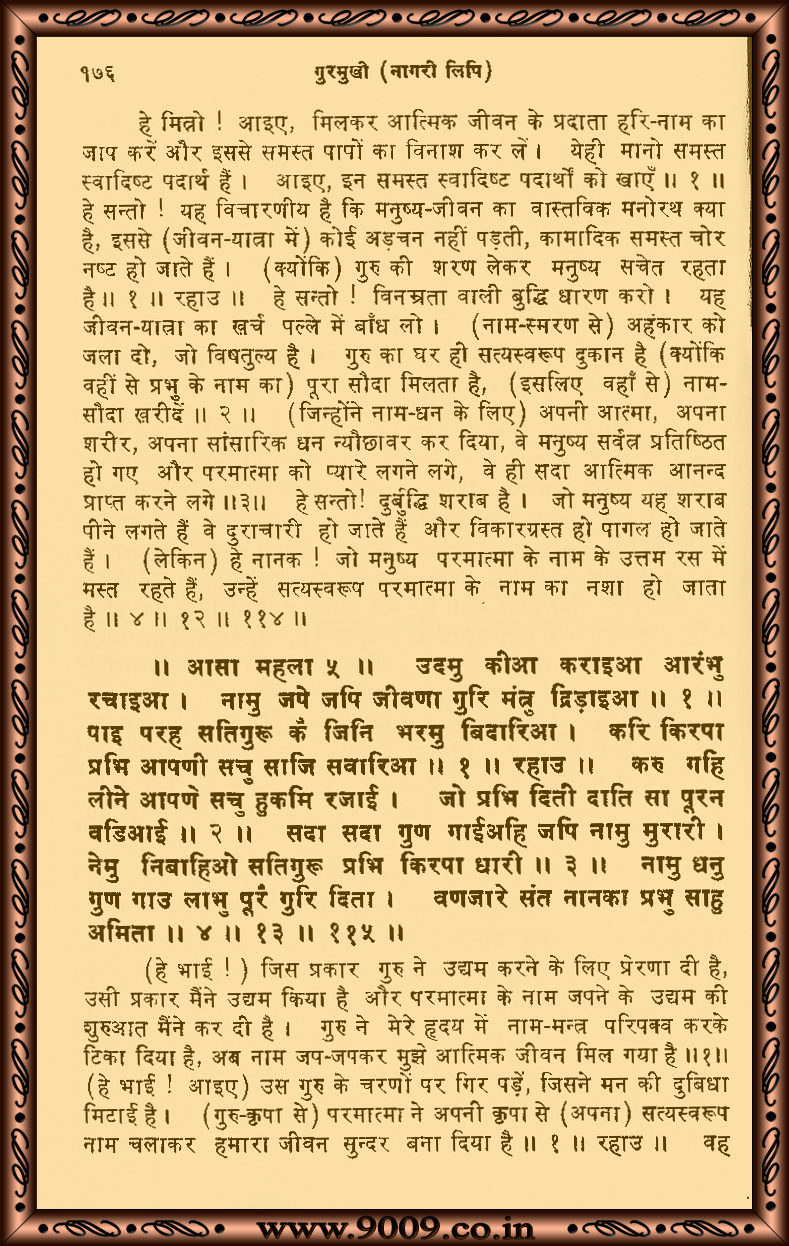 १७६ गुरमुखी (नागरी लिपि)
हे मित्रो ! आइए, मिलकर आत्मिक जीवन के प्रदाता हरि-नाम का
जाप करें और इससे समस्त पापों का विनाश कर लें। येही मानो समस्त
स्वादिष्ट पदार्थ हैं। आइए, इन समस्त स्वादिष्ट पदार्थों को खाएँ ॥ १ ॥
हे सन्तो ! यह विचारणीय है कि मनुष्य-जीवन का वास्तविक मनोरथ क्या
है, इससे (जीवन-यात्रा में) कोई अड़चन नहीं पड़ती, कामादिक समस्त चोर
नष्ट हो जाते हैं। (क्योंकि) गुरु की शरण लेकर मनुष्य सचेत रहता
है॥ १ ॥ रहाउ ॥ हे सन्तो ! विनम्रता वाली बुद्धि धारण करो। यह
जीवन-यात्रा का ख़र्च पल्ले में बाँध लो। (नाम-स्मरण से) अहंकार को
जला दो, जो विषतुल्य है। गुरु का घर ही सत्यस्वरूप दुकान है (क्योंकि
वहीं से प्रभु के नाम का) पूरा सौदा मिलता है, (इसलिए वहाँ से) नाम-
सौदा ख़रीदें ॥ २ ॥ (जिन्होंने नाम-धन के लिए) अपनी आत्मा, अपना
शरीर, अपना सांसारिक धन न्यौछावर कर दिया, वे मनुष्य सर्वत्र प्रतिष्ठित
हो गए और परमात्मा को प्यारे लगने लगे, वे ही सदा आत्मिक आनन्द
प्राप्त करने लगे ॥३॥ हे सन्तो! दुर्बुद्धि शराब है। जो मनुष्य यह शराब
पीने लगते हैं वे दुराचारी हो जाते हैं और विकारग्रस्त हो पागल हो जाते
हैं। (लेकिन) हे नानक ! जो मनुष्य परमात्मा के नाम के उत्तम रस में
मस्त रहते हैं, उन्हें सत्यस्वरूप परमात्मा के नाम का नशा हो जाता
है ॥ ४ ॥ १२ ॥ ११४ ॥
॥ आसा महला ५ ॥ उदमु कीआ कराइआ आरंभु
रचाइआ। नामु जपे जपि जीवणा गुरि मंत्रु द्रिड़ाइआ ॥ १ ॥
पाइ परह सतिगुरू कै जिनि भरमु बिदारिआ। करि किरपा
प्रभि आपणी सचु साजि सवारिआ ॥ १ ॥ रहाउ ॥ करु गहि
लीने आपणे सचु हुकमि रजाई। जो प्रभि दिती दाति सा पूरन
वडिआई ॥ २ ॥ सदा सदा गुण गाईअहि जपि नामु मुरारी।
नेमु निबाहिओ सतिगुरू प्रभि किरपा धारी ॥ ३ ॥ नामु धनु
गुण गाउ लाभु पूरै गुरि दिता। वणजारे संत नानका प्रभु साहु
अमिता ॥ ४ ॥ १३ ॥ ११५ ॥
(हे भाई ! ) जिस प्रकार गुरु ने उद्यम करने के लिए प्रेरणा दी है,
उसी प्रकार मैंने उद्यम किया है और परमात्मा के नाम जपने के उद्यम की
शुरुआत मैंने कर दी है। गुरु ने मेरे हृदय में नाम-मन्त्र परिपक्व करके
टिका दिया है, अब नाम जप-जपकर मुझे आत्मिक जीवन मिल गया है॥१॥
(हे भाई ! आइए) उस गुरु के चरणों पर गिर पड़ें, जिसने मन की दुबिधा
मिटाई है। (गुरु-कृपा से) परमात्मा ने अपनी कृपा से (अपना) सत्यस्वरूप
नाम चलाकर हमारा जीवन सुन्दर बना दिया है॥ १ ॥ रहाउ ॥ वह
www.9009.co.in